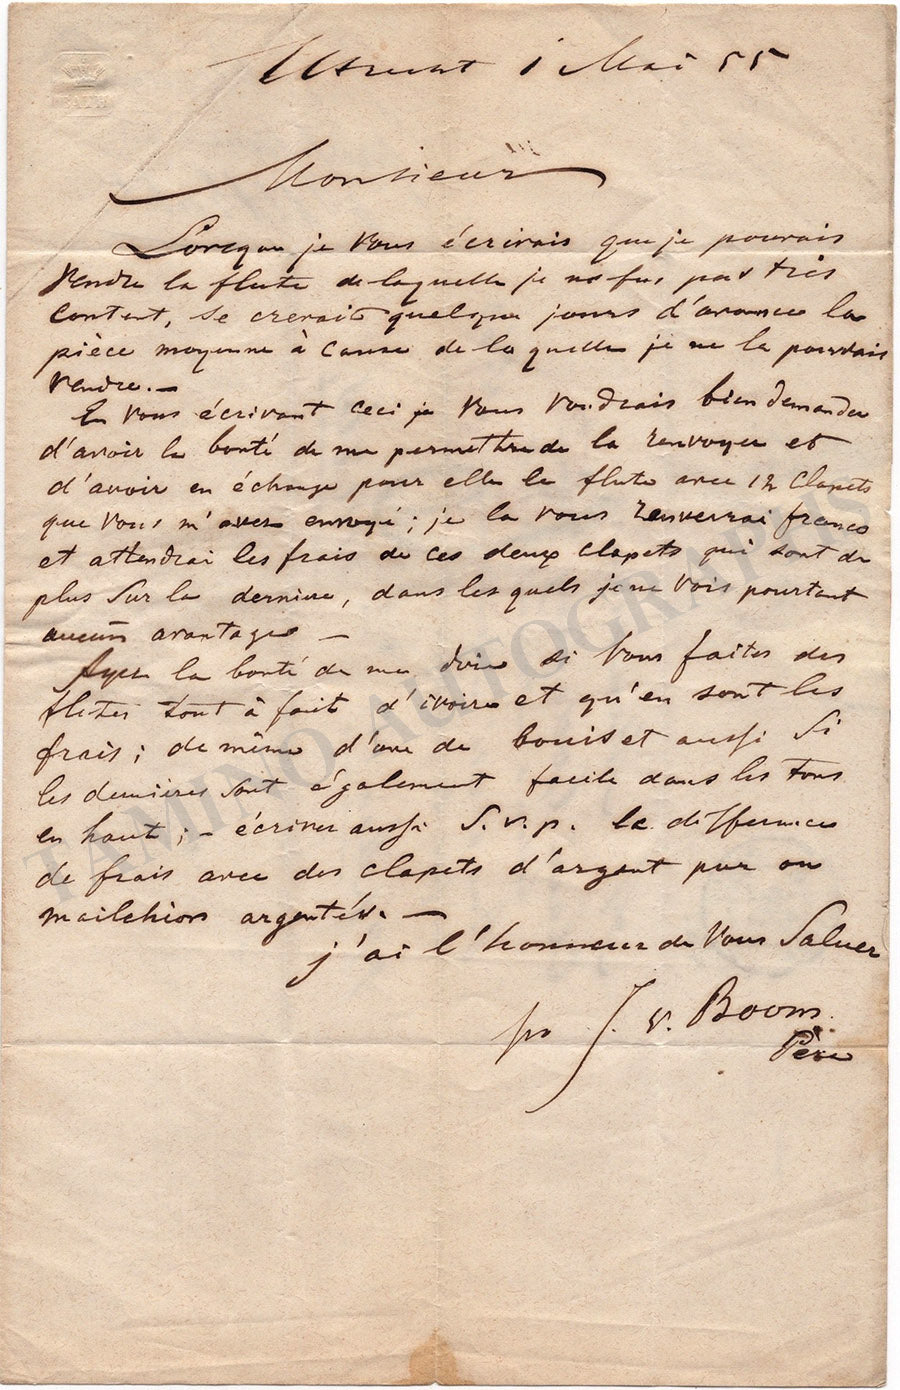 BATH
Utrecht 1 Mai 55
Monsieur
Lorsque je vous écrivais que je pourais
vendre la flute de laquelle je ne fus pas très
content, se crevait quelque jours d'avance la
pièce moyenne à cause de laquelle je ne la pouvais
vendre. —
En vous écrivant ceci je vous voudrais bien demander
d'avoir la bonté de me permettre de la renvoyer et
d'avoir en échange pour elle la flute avec 12 Clapets
que vous m'avez envoyé; je la vous renverrai franco
et attendrai les frais de ces deux clapets qui sont de
plus sur la dernière, dans les quels je ne vois pourtant
aucun avantage —
Ayez la bonté de me dire si vous faites des
flutes tout à fait d'ivoire et qu'en sont les
frais; de même d'une de bouis et aussi si
les dernières sont également facile dans les tons
en haut; – écrivez aussi S. v. p. la difference
de frais avec des clapets d'argent pur ou
argentés. —
j'ai l'honneur de Vous Saluer
J. v. Boom
Père
TAMINO AUTOGRAPHS